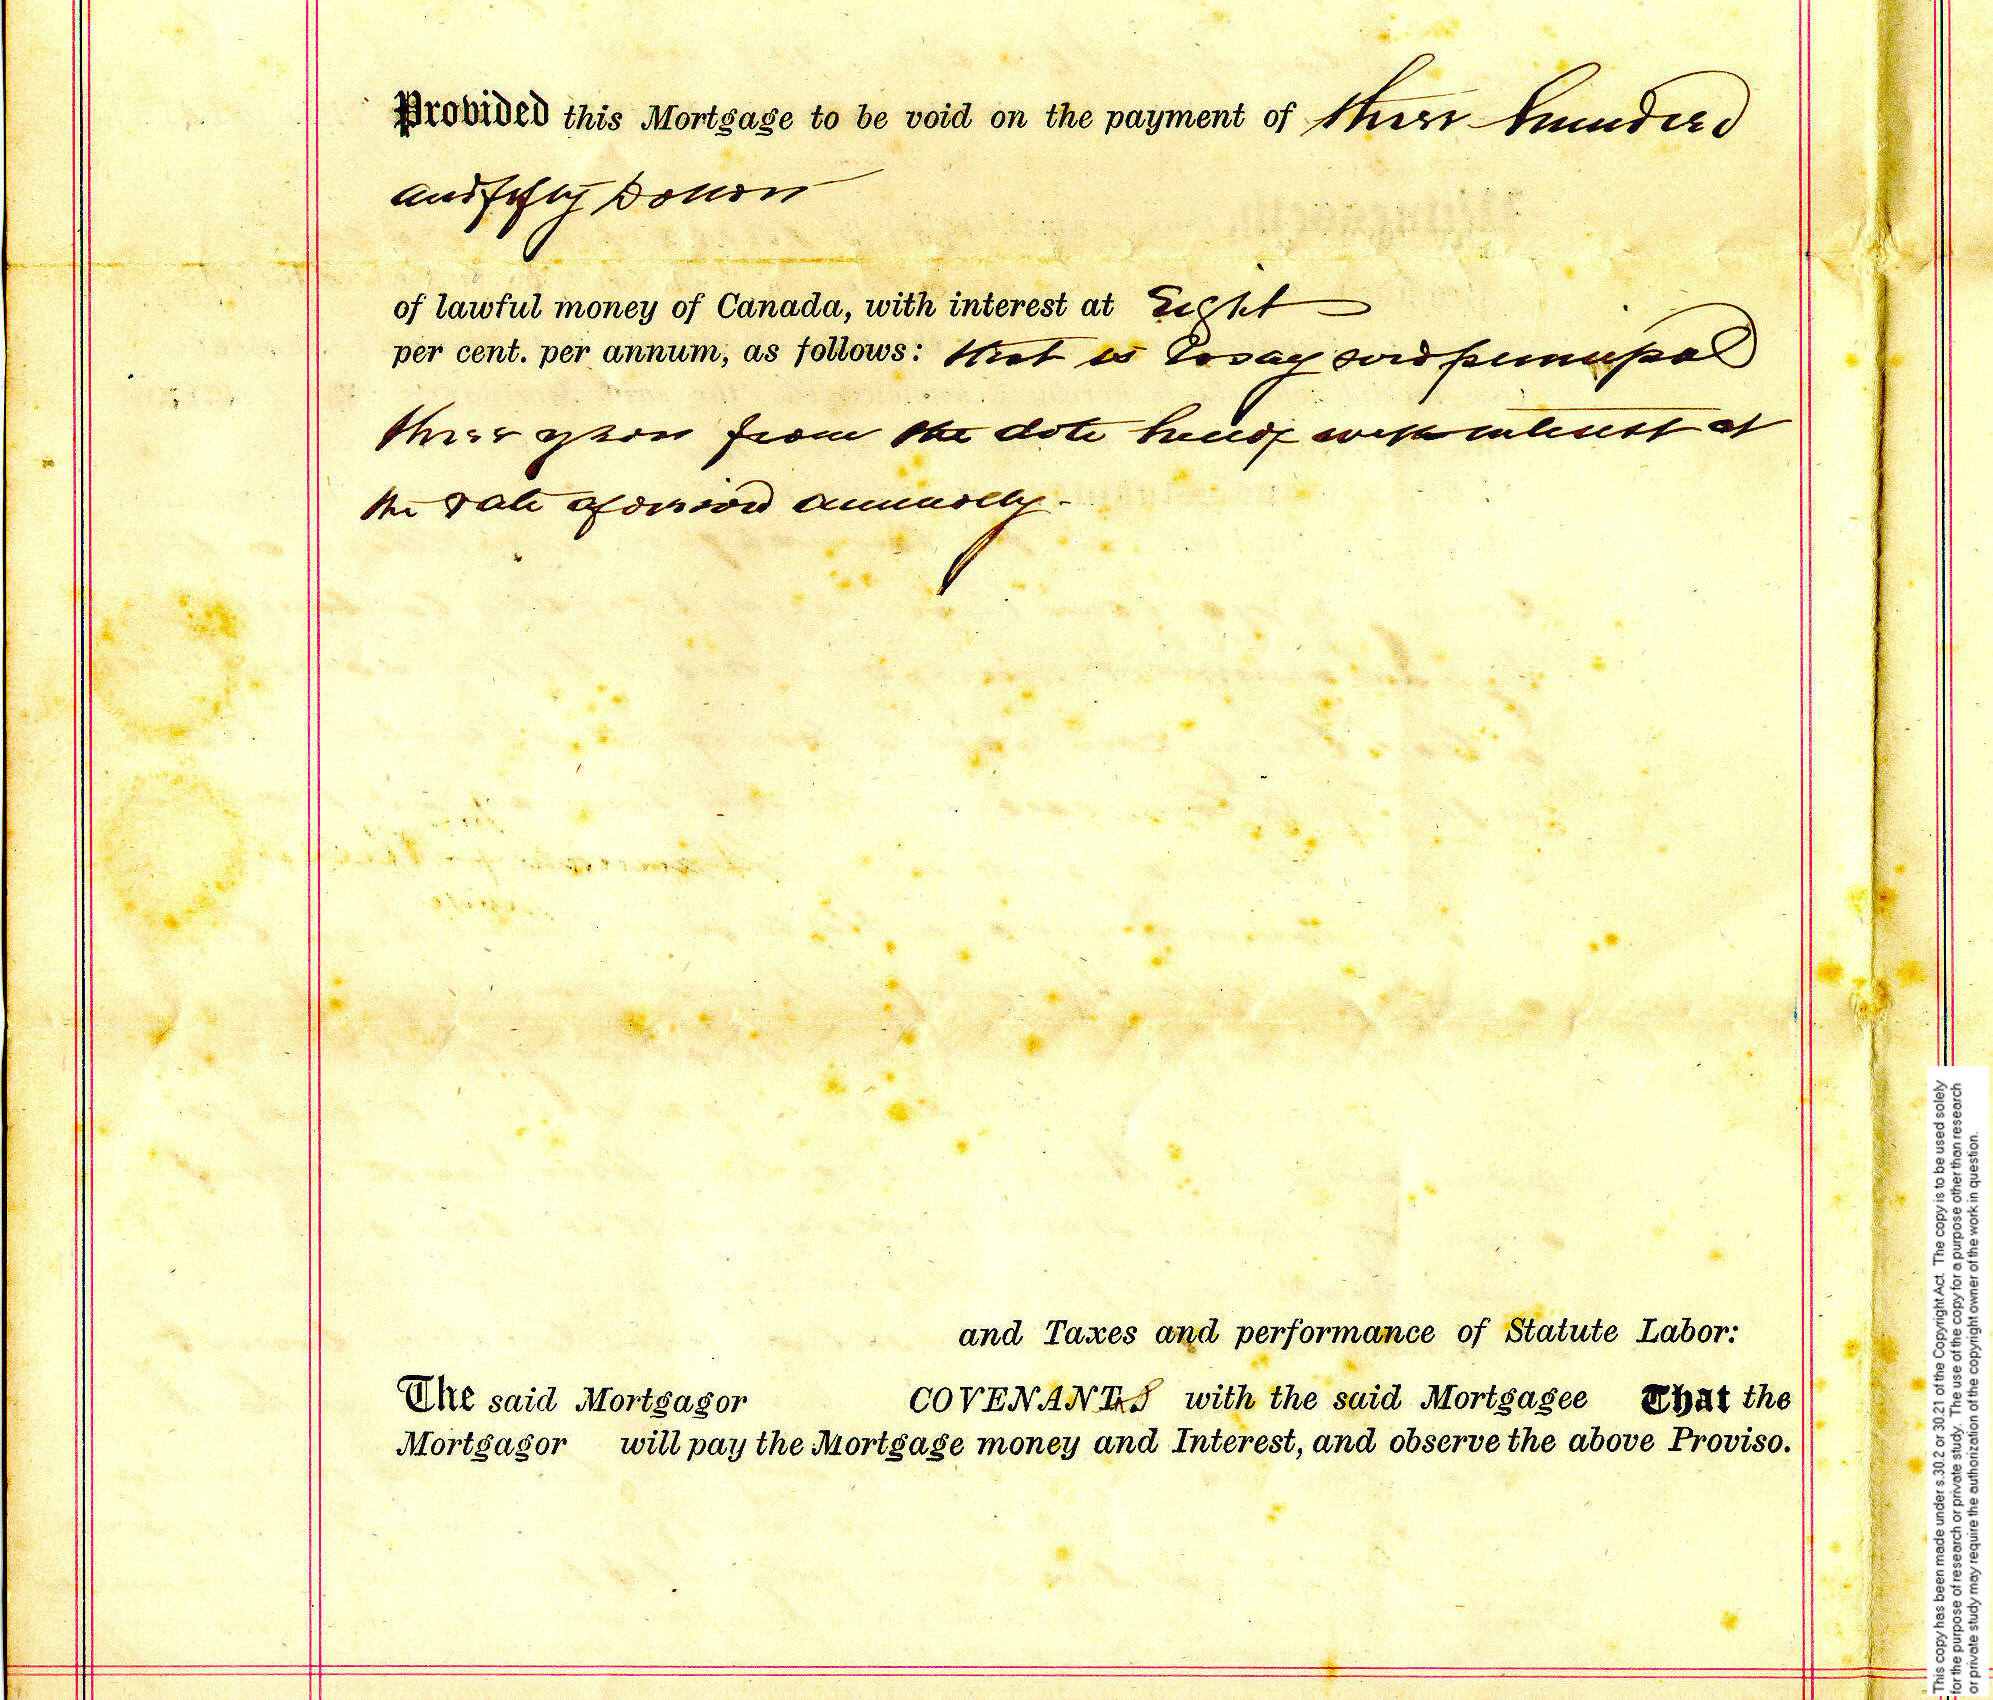 Provided this Mortgage to be void on the payment of three hundred
and fifty Dollars
of lawful money of Canada, with interest at Eight
per cent. per annum, as follows: that is to say said principal
three years from the date hereof with interest at
the rate aforesaid annually.
and Taxes and performance of Statute Labor:
The said Mortgagor COVENANTS with the said Mortgagee That the
Mortgagor will pay the Mortgage money and Interest, and observe the above Proviso.
This copy has been made under s.30.2 or 30.21 of the Copyright Act. The copy is to be used solely
for the purpose of research or private study. The use of the copy for a purpose other than research
or private study may require the authorization of the copyright owner of the work in question.